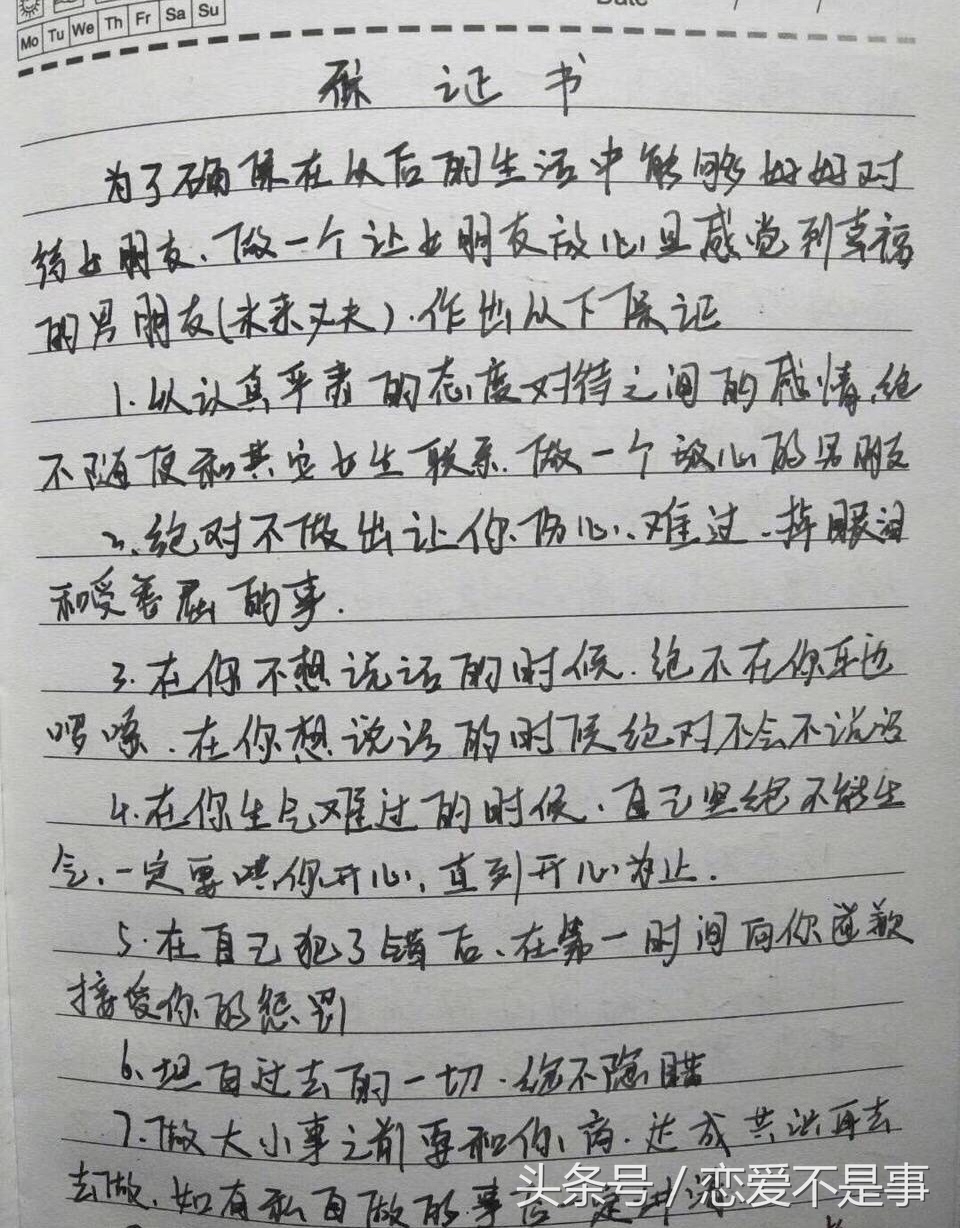 Mo Tu We Th Fr Sa Su
Date
保 证 书
为了确保在以后的生活中能够好好对
待女朋友、做一个让女朋友放心且感觉到幸福
的男朋友(未来丈夫).作出以下保证
1.以认真严肃的态度对待之间的感情,绝
不随便和其它女生联系.做一个放心的男朋友
2.绝对不做出让你伤心、难过、掉眼泪
和受委屈的事.
3.在你不想说话的时候.绝不在你耳边
啰嗦.在你想说话的时候绝对不会不说话
4.在你生气难过的时候、自己坚绝不能生
气、一定要哄你开心,直到开心为止.
5.在自己犯了错后、在第一时间向你道歉
接受你的惩罚
6、坦白过去的一切.绝不隐瞒
7.做大小事之前要和你商.达成共识再去
去做.如有私自做的事后一定
头条号/恋爱不是事